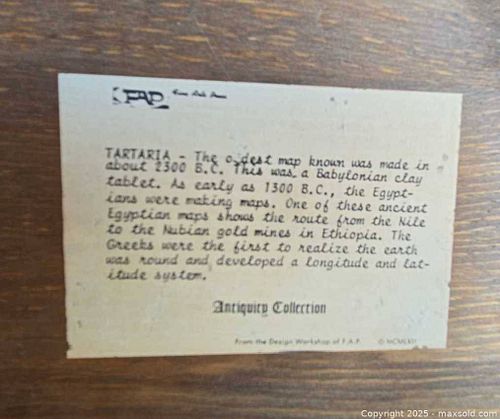 FAP
TARTARIA - The oldest map known was made in
about 2300 B.C. This was a Babylonian clay
tablet. As early as 1300 B.C., the Egypt-
ians were making maps. One of these ancient
Egyptian maps shows the route from the Nile
to the Nubian gold mines in Ethiopia. The
Greeks were the first to realize the earth
was round and developed a longitude and lat-
itude system.
Antiquity Collection
From the Design Workshop of F.A.P. ©
Copyright © 2025 - maxsold.com